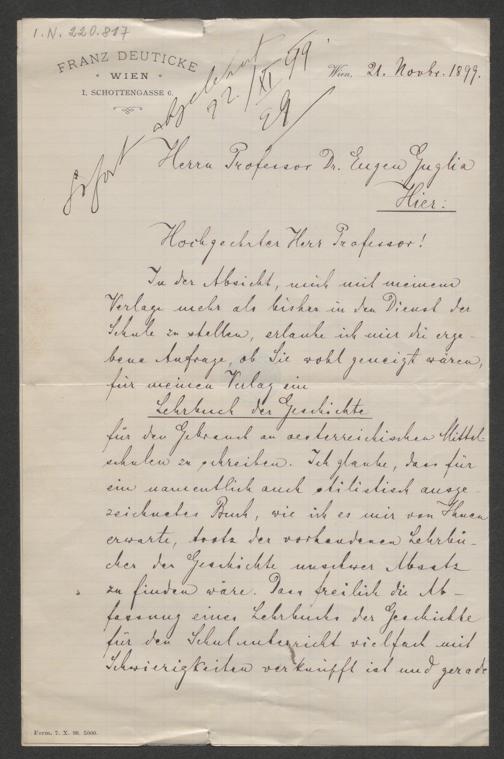 I.N. 220.817
FRANZ DEUTICKE
WIEN
I, SCHOTTENGASSE 6.
Sofort abgelehnt
22./XI 99
Wien, 21. Novbr. 1899.
Herrn Professor Dr. Eugen Guglia
Hier:
Hochgeehrter Herr Professor!
In der Absicht, mich mit meinem
Verlage mehr als bisher in den Dienst der
Schule zu stellen, erlaube ich mir die erge-
bene Anfrage, ob Sie wohl geneigt wären,
für meinen Verlag ein
Lehrbuch der Geschichte
für den Gebrauch an oesterreichischen Mittel-
schulen zu schreiben. Ich glaube, dass für
ein namentlich auch stilistisch ausge-
zeichnetes Buch, wie ich es mir von Ihnen
erwarte, trotz der vorhandenen Lehrbü-
cher der Geschichte unschwer Absatz
zu finden wäre. Dass freilich die Ab-
fassung eines Lehrbuchs der Geschichte
für den Schulunterricht vielfach mit
Schwierigkeiten verknüpft ist und gerade
Form. 7. X. 98. 5000.